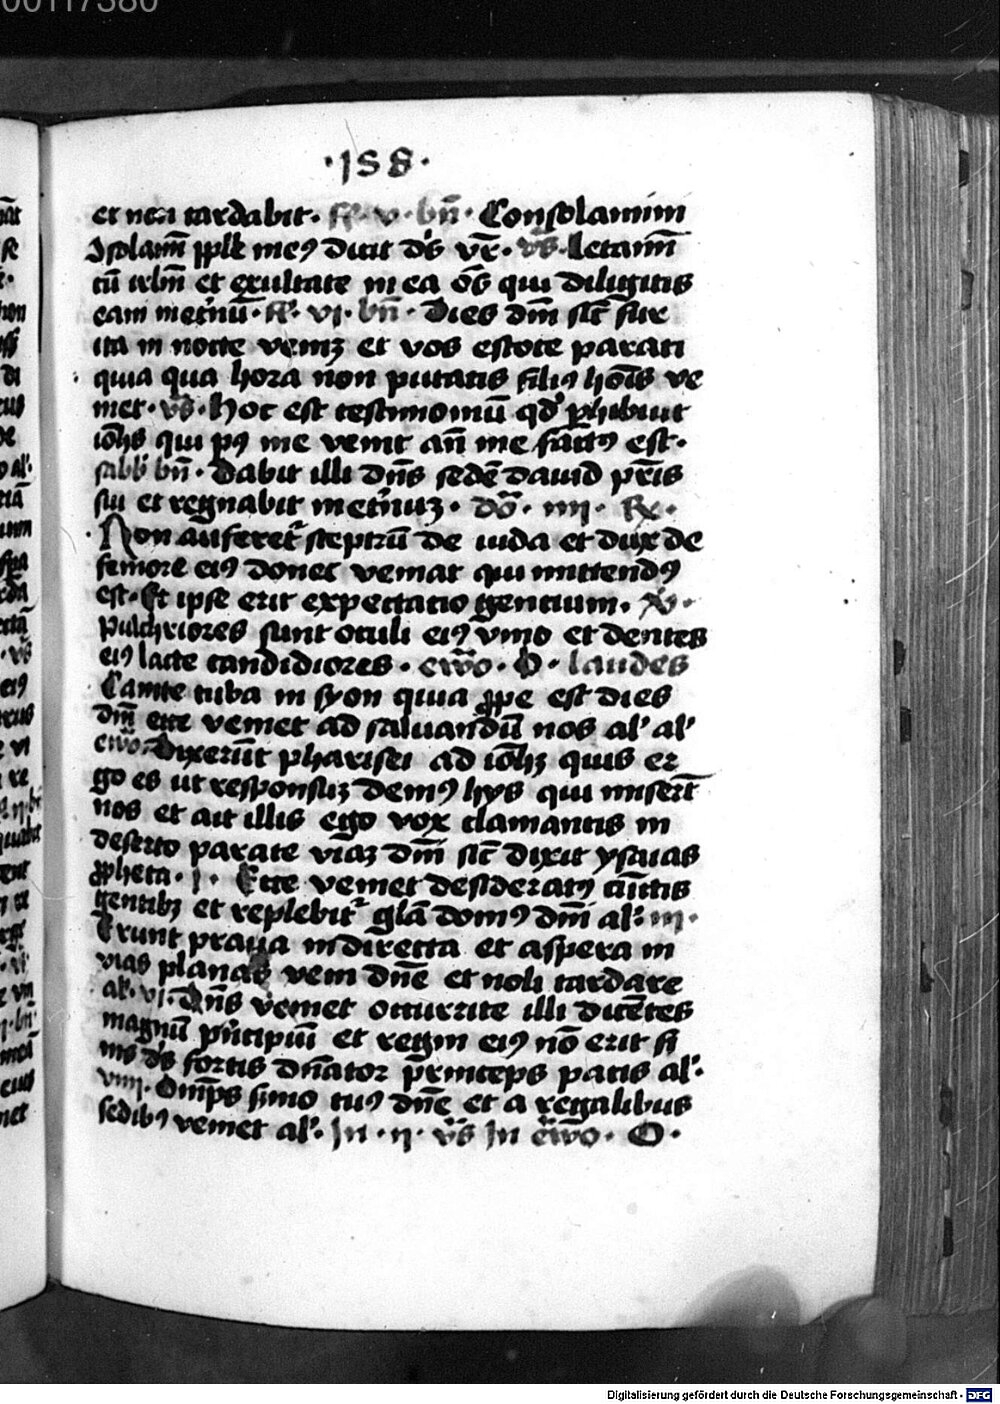 ·158·
et nõ tardabit. f̃. v. bñ. Consolamini
ɔsolamī pp̄le meꝰ dicit dꝰs vr̃. v̄s. letamī
cū irl̄m et exultate in ea oēs qui diligitis
eam ineťnū. f̃. vi. bñ. Dies dm̄ sic̄ fur
ita in nocte venieꝫ et vos estote parati
quia qua hora non putatis filiꝰ hoīs ve
niet. v̄s. hoc est testimoniū qđ phibuit
ioh̄s qui pꝰ me venit an̄ me factꝰ est.
sabb̄ bñ. Dabit illi dn̄s sedē dauid pr̄is
sui et regnabit ineťnuꝫ. dō. iiii. R̃.
Non auferetˀ sceptrū de iuda et dux de
femore eiꝰ donec veniat qui mittendꝰ
est. Et ipse erit expectatio gentium. v̄.
Pulchriores sunt oculi eiꝰ vino et dentes
eiꝰ lacte candidiores. ew̄o. O. laudes
Canite tuba in syon quia ꝓpe est dies
dm̄ ecce veniet ad saluandū nos al' al'
ew̄o. Dixerūt pharisei ad ioh̄ꝫ quis er
go es ut responsuꝫ demꝰ hys qui miserūt
nos et ait illis ego vox clamantis in
deserto parate viaꝫ dm̄ sic̄ dixit ysaias
ꝓpheta. i. Ecce veniet desideratꝰ cūctis
gentibꝫ et replebitˀ gl̄a domꝰ dm̄ al'. iii.
Erunt praua indirecta et aspera in
vias planas veni dn̄e et noli tardare
al'. vi. Dn̄s veniet occurrite illi dicētes
magnū pn̄cipiū et regni eiꝰ nō erit fi
nis dꝰs fortis dn̄ator p̄rinceps pacis al'.
viiii. Om̄ps s̄mo tuꝰ dn̄e et a regalibus
sedibꝰ veniet al'. In. ii. v̄s In ew̄o. O.
Digitalisierung gefördert durch die Deutsche Forschungsgemeinschaft - DFG